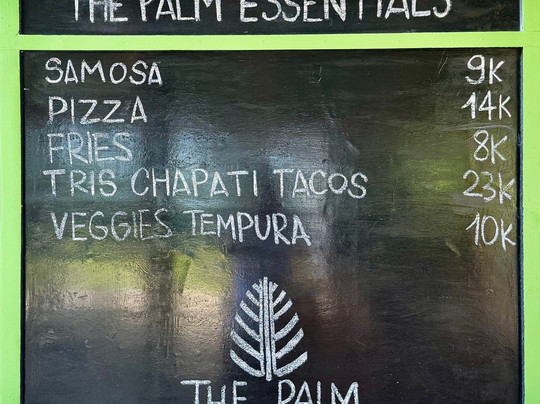 THE PALM ESSENTIALS
SAMOSA 9K
PIZZA 14K
FRIES 8K
TRIS CHAPATI TACOS 23K
VEGGIES TEMPURA 10K
THE PALM